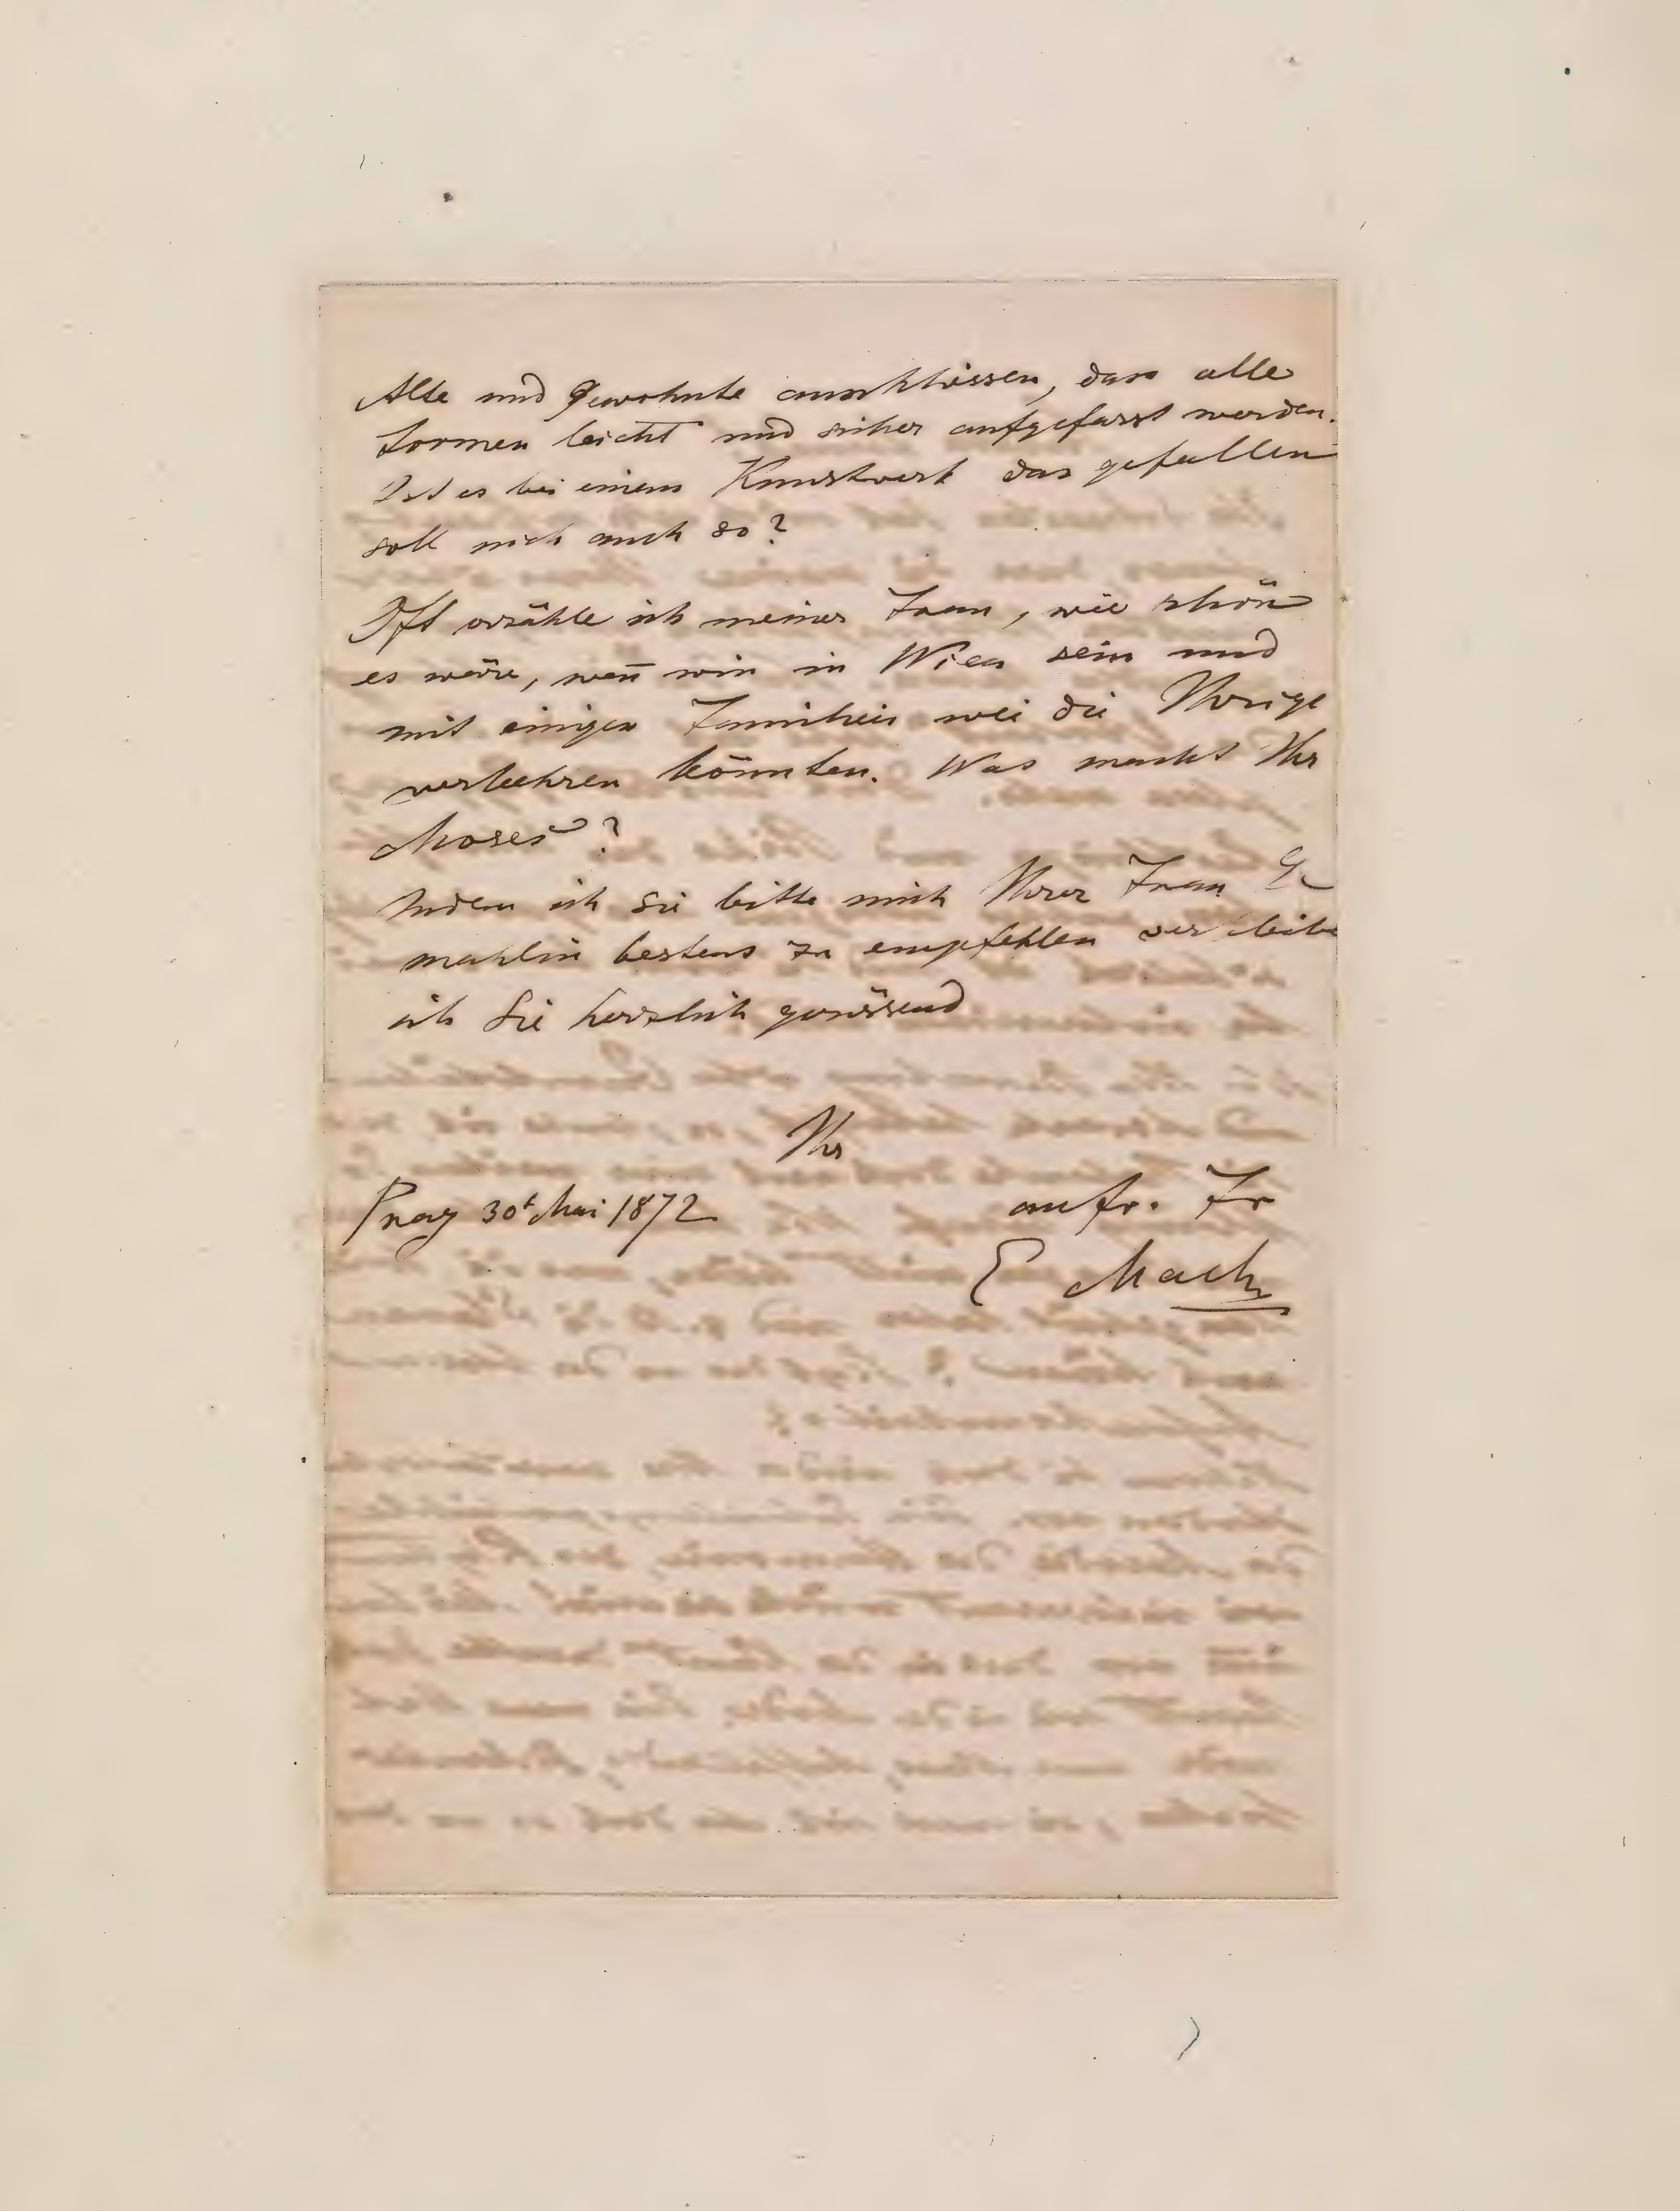 Alte und Gewohnte anschliessen, dass alle
Formen leicht und sicher aufgefasst werden.
Ist es bei einem Kunstwerk das gefallen
soll nich auch so?
Oft erzähle ich meiner Frau, wie schön
es wäre, wen̄ wir in Wien sein und
mit einigen Familien wie die Ihrige
verkehren könnten. Was macht Ihr
Moses?
Indem ich Sie bitte mich Ihrer Frau Ge
mahlin bestens zu empfehlen verbleibe
ich Sie herzlich grüssend
Ihr
Prag 30t Mai 1872
aufr. Fr
E Mach